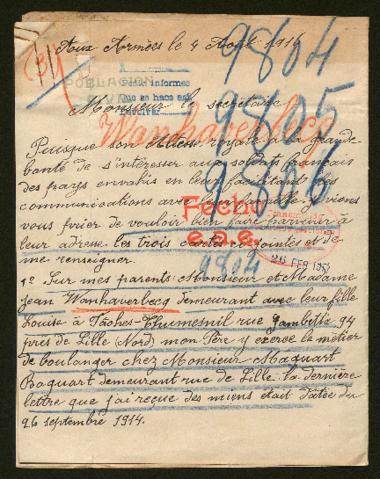 Aux Armées le 4 Août 1916
(3)
9804
POBLACION
Pedir informes
Que se hace esp
Monsieur le secrétaire
9805
Wanhaverbecq
Puisque son Altesse royale a la grande
bonté de s'intéresser aux soldats français
des pays envahis en leur facilitant les
communications avec
9806
vous prier de vouloir bien faire parvenir à
Fecho
leur adresse les trois cartes ci-jointes et de
me renseigner.
e.a.e.
9904
26 FEB 191
1° Sur mes parents Monsieur et Madame
Jean Wanhaverbecq demeurant avec leur fille
Louise à Fâches-Thumesnil rue Gambetta 94
près de Lille (Nord) mon Père y exerce le métier
de boulanger chez Monsieur Maquart
Baquart demeurant rue de Lille. la dernière
lettre que j'ai reçue des miens était datée du
26 septembre 1914.